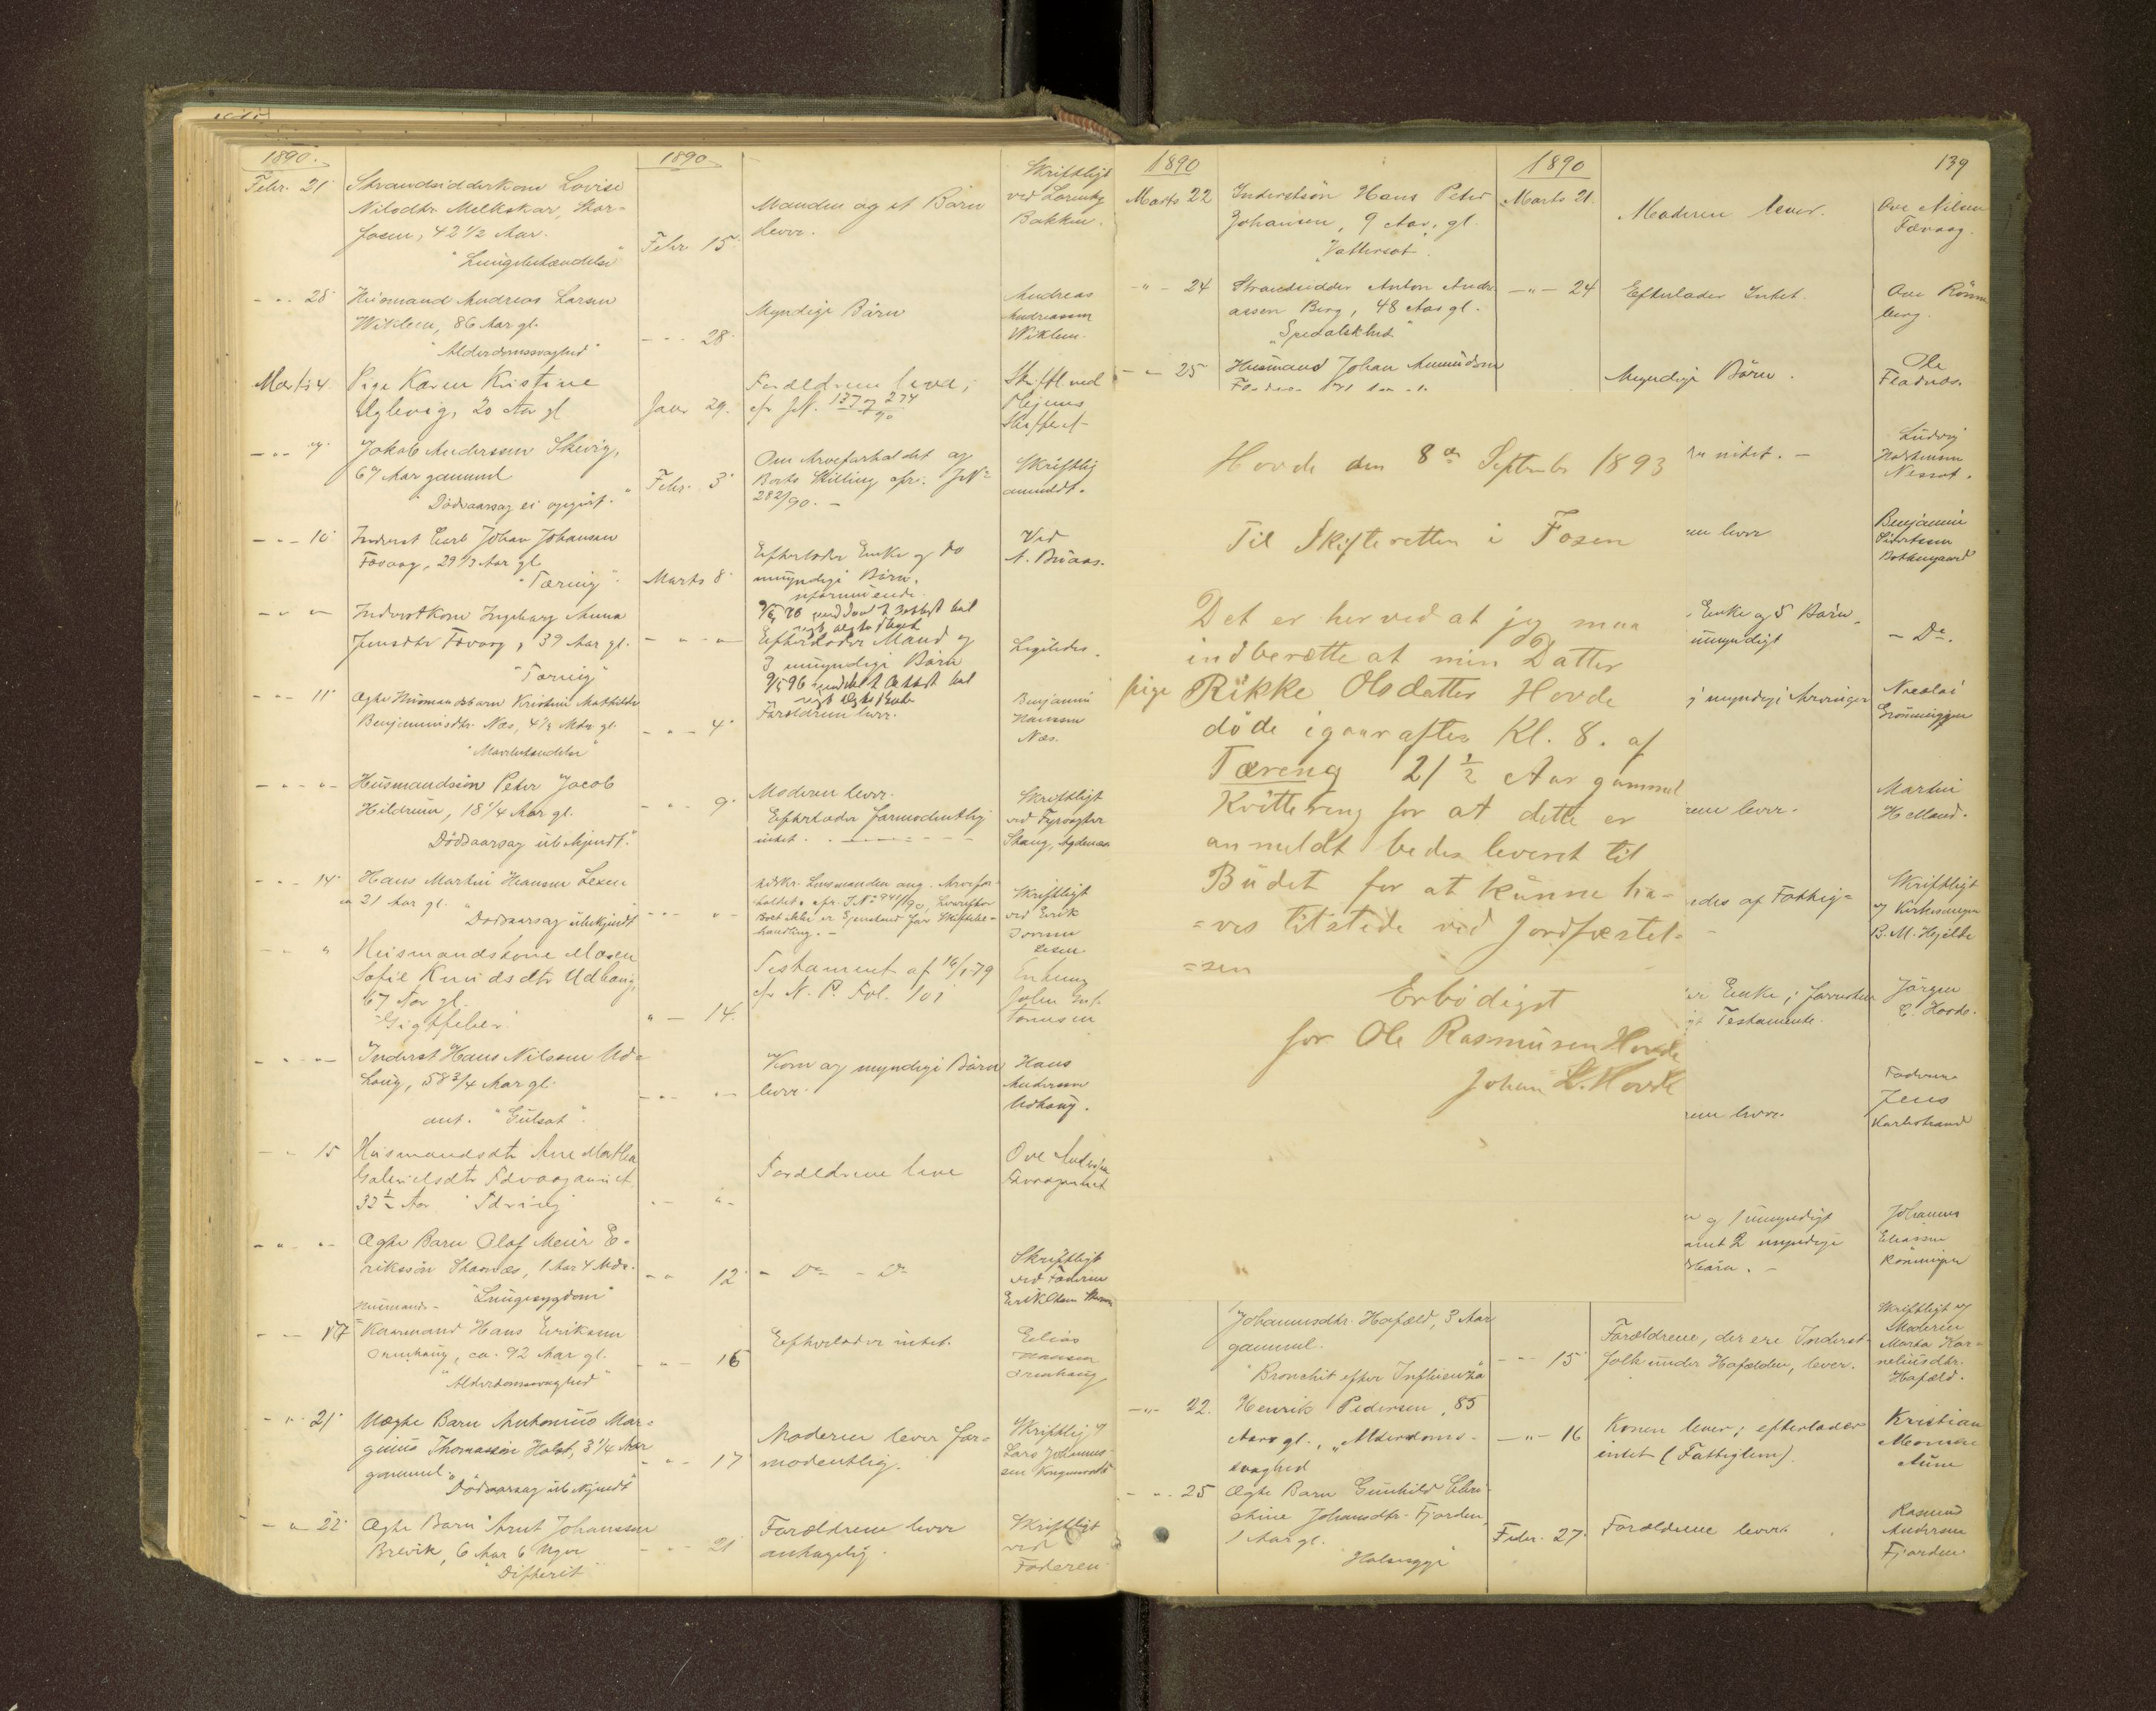 1890.
1890
Febr. 21
Strandsidderkone Lovise
Nilsdtr. Melkskar, Stor-
fosen, 42 1/2 Aar.
"Lungebetændelse"
Febr 15
Manden og et Barn
lever.
Skriftligt
ved Lorentz
Bakken.
28
Husmand Andreas Larsen
Wiklem, 86 Aar gl.
"Alderdomssvaghed"
28
Myndige Børn
Andreas
Andreassen
Wiklem.
Marts 4
Pige Karen Kristine
Uglevig, 20 Aar gl
Janr 29.
Forældrene leve;
cfr JN. 137 og 274
90
Skriftl ved
7
Jakob Andersen Skevig,
67 Aar gammel
"Dødsaarsag ei opgivet."
Febr. 3
Om Arveforholdet og
Boets Stilling cfr. JNo
282/90. -
Skriftlig
anmeldt.
10
Inderst Carl Johan Johansen
Fævaag, 29 1/3 Aar gl
"Tæring"
Marts 8
Efterlader Enke og do
umyndige Børn.
nformuende.
Ved
A. Buaas.
Inderstkone Ingeborg Anna
Jensdtr Fævaag, 39 Aar gl.
"Tæring"
Efterlader Mand og
3 umyndige Børn
Ligeledes.
11
Ægte Husmandsbarn Kristine Mathilde
Benjaminsdtr. Næs, 4 1/2 Mdr gl.
"Mavebetændelse"
4
Forældrene lever.
Benjamin
Hansen
Næs.
Husmandssøn Peter Jacob
Hildrum, 18 1/4 Aar gl.
Dødsaarsag ubekjendt."
9
Moderen lever.
Efterlader formodentlig
intet.
Skriftligt
ved Fyrvogter
Stang, Agdenæs
14
Hans Martin Hansen Lexen
ca 21 Aar gl.
"Dødsaarsag ubekjendt
tilskr. Lensmanden ang. Arvefor-
holdet. cfr. JNo 941/90, hvorefter
Boet ikke er Gjenstand for Skiftebe-
handling. -
Skriftligt
ved Erik
Lexen
Husmandskone Maren
Sofie Knudsdtr Udhaug,
67 Aar gl.
"Gigtfeber"
14.
Testament af 16/1 79
cfr N. P. Fol. 101
Enkemand
John
Inderst Hans Nilssen Ud-
haug, 58 3/4 Aar gl.
ant. "Gulsot".
Kone og myndige Børn
lever.
Hans
Andersen
Udhaug.
15
Husmandsdtr Ane Martha
Gabrielsdtr Fævaagaunet,
33 1/2 Aar "Tæring
Forældrene leve
Ove Andersen
Ægte Barn Olaf Meier E-
riksen Skaanæs, 1 Aar 4 Mdr.
Husmands- "Lungesygdom"
12
- Do - Do
Skriftligt
ved Faderen
Erik Olsen
17
Kaarmand Hans Eriksen
Ørenhaug, ca. 92 Aar gl.
"Alderdomssvaghed"
16
Efterlader intet.
Elias
Hansen
Ørenhaug
21
Uægte Barn Antonius Mar-
ginus Thomassen Holst, 3 1/4 Aar
gammel.
"Dødsaarsag ubekjendt"
17
Moderen lever for-
modentlig.
Skriftlig af
Lars Johannes-
sen Kongensvold
22
Ægte Barn Arnt Johanssen
Brevik, 6 Aar 6 Uger
"Difterit"
21
Forældrene lever
antagelig.
Skriftligt
ved
Faderen
1890
1890
139
Marts 22
Inderstsøn Hans Peter
Johansen, 9 Aar, gl.
"Vattersot".
Marts 21.
Moderen lever.
Ove Nilsen
Fævaag.
24
Strandsidder Anton Andre-
assen Berg, 48 Aar gl.
"Spedalskhed"
24
Efterlader Intet.
Ove Rönne
berg.
25
Husmand Johan Amundsen
Myndige Børn.
Ole
Fladnes.
Hovde den 8de Septembr 1893
Til Skifteretten i Fosen
Det er herved at jeg maa
indberette at min Datter
pige Rikke Olsdatter Hovde
døde igaar aftes Kl. 8. af
Tæreng 21 1/2 Aar gammel
Kvittering for at dette er
anmeldt bedes leveret til
Budet for at kunne ha-
=ves tilstede vid Jordfæstel-
=sen
Erbødigst
for Ole Rasmusen Hovde
Johan L. Hovde
intet. -
Ludvig
Nesset.
lever
Benjamin
Sivertsen
Bothengaard
Enke og 5 Børn,
umyndigt
- Do.
myndige Arvinger
Nicolai
Grønningen
lever.
Martin
Helland.
edes af Fattig=
Skriftligt
af Kirkesanger
B. M. Hejlde
Enke; forventer
Testamente.
Jörgen
C. Hovde.
lever.
Faderen
Jens
Karlstrand
og 1 umyndigt
samt 2 umyndige
børn. -
Johannes
Eliassen
Røningen
Johannesdtr. Hafæld, 3 Aar
gammel.
"Bronchit efter Influenza"
15
Forældrene, der ere Inderst-
folk under Hafælden, lever.
Skriftligt af
Moderen
Marta Kor-
neliusdtr.
Hafæld.
22.
Henrik Pedersen, 85
Aar gl., "Alderdoms-
svaghed
16
Konen lever; efterlader
intet (Fattiglem).
Kristian
Monsen
Aune
25
Ægte Barn Gunhild Chri-
stine Johansdtr. Fjorden,
1 Aar gl.
"Halssyge"
Febr. 27.
Forældrene lever.
Rasmus
Andersen
Fjorden